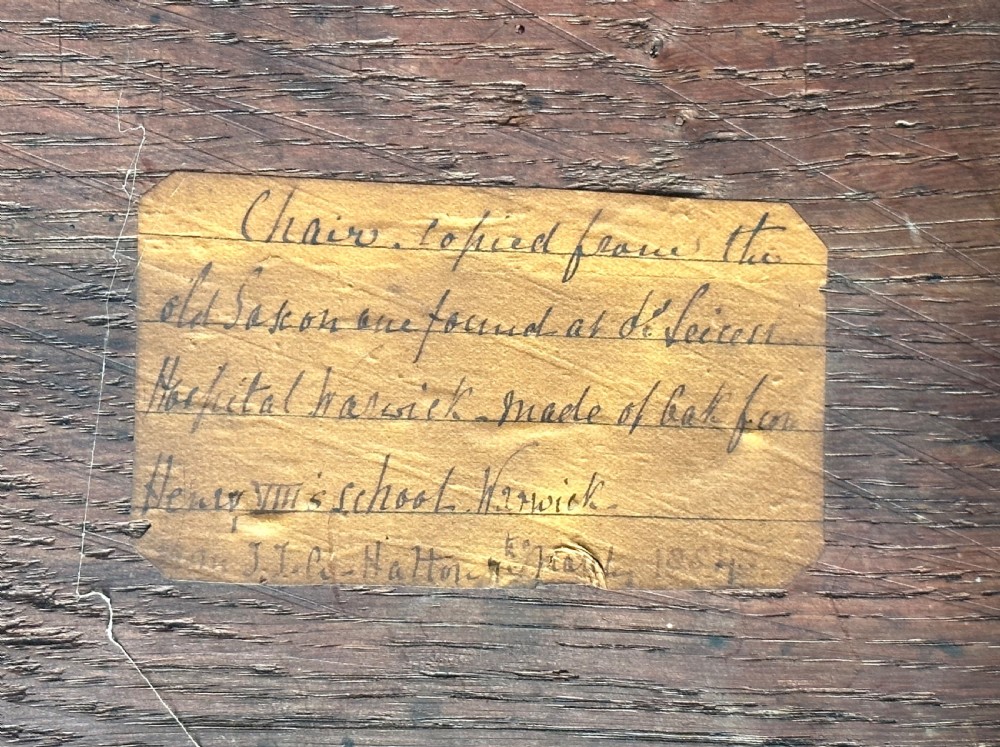 Chair. copied from the
old Saxon one found at Ld Leicesr
Hospital Warwick - made of Oak from
Henry VIII's school. Warwick
Hatton